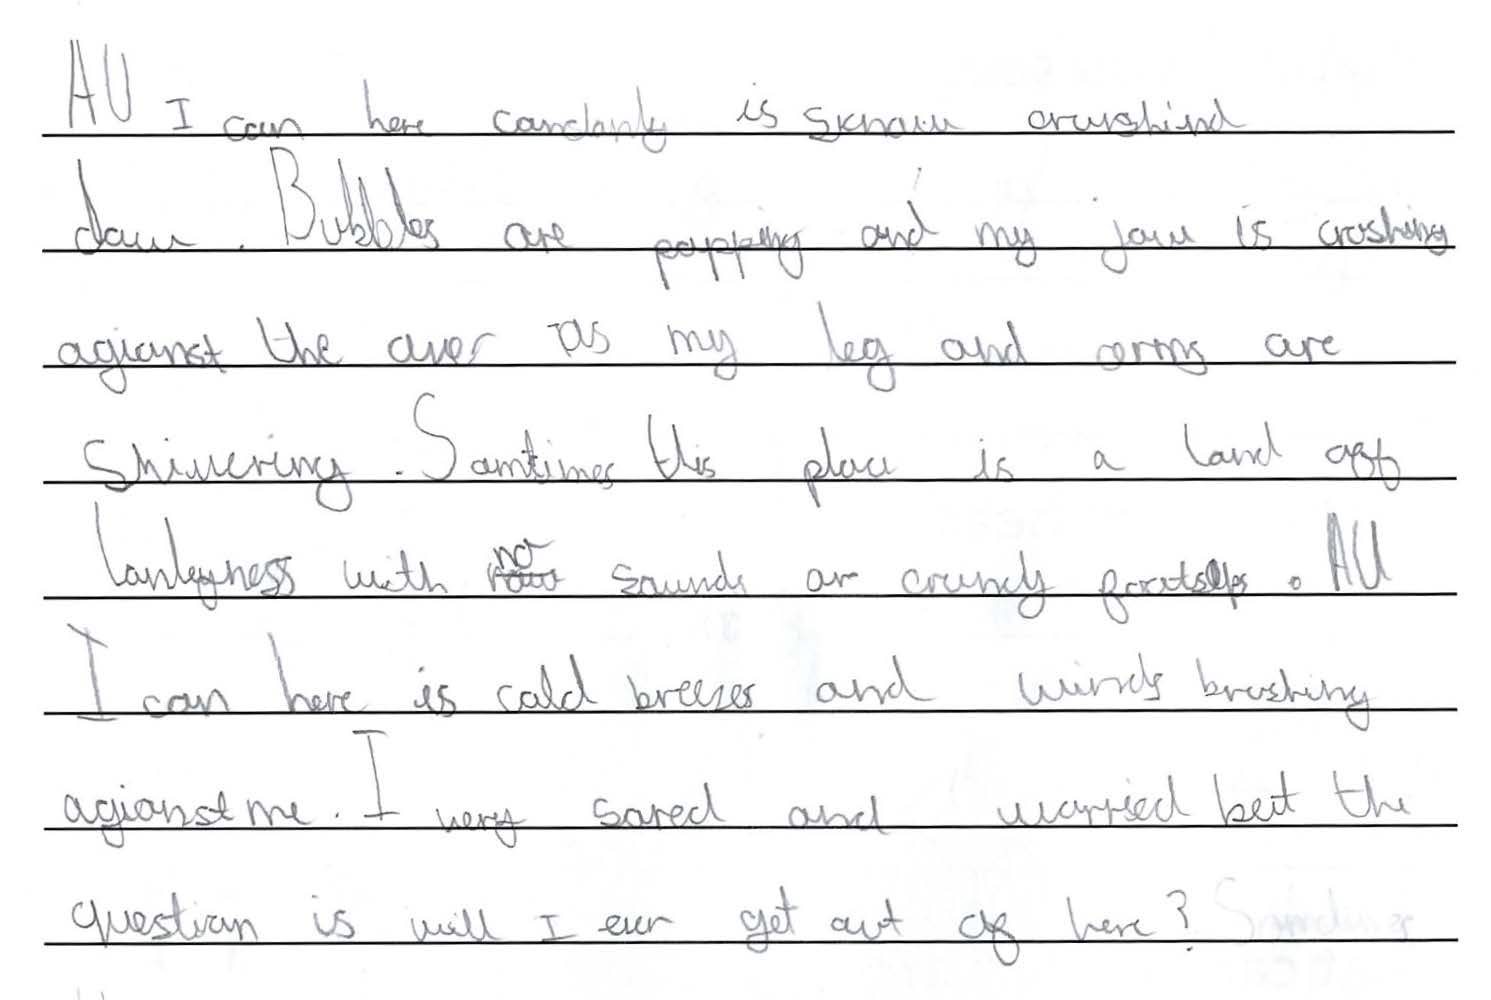 All I can here constantly is snow crushind
down. Bubbles are popping and my jaw is crashing
agianst the other as my leg and arms are
shivering. Somtimes this place is a land off
lonleyness with no sounds or crunchy footsteps. All
I can here is cold breezes and winds brushing
agianst me. I very scared and worried but the
question is will I ever get out of here?